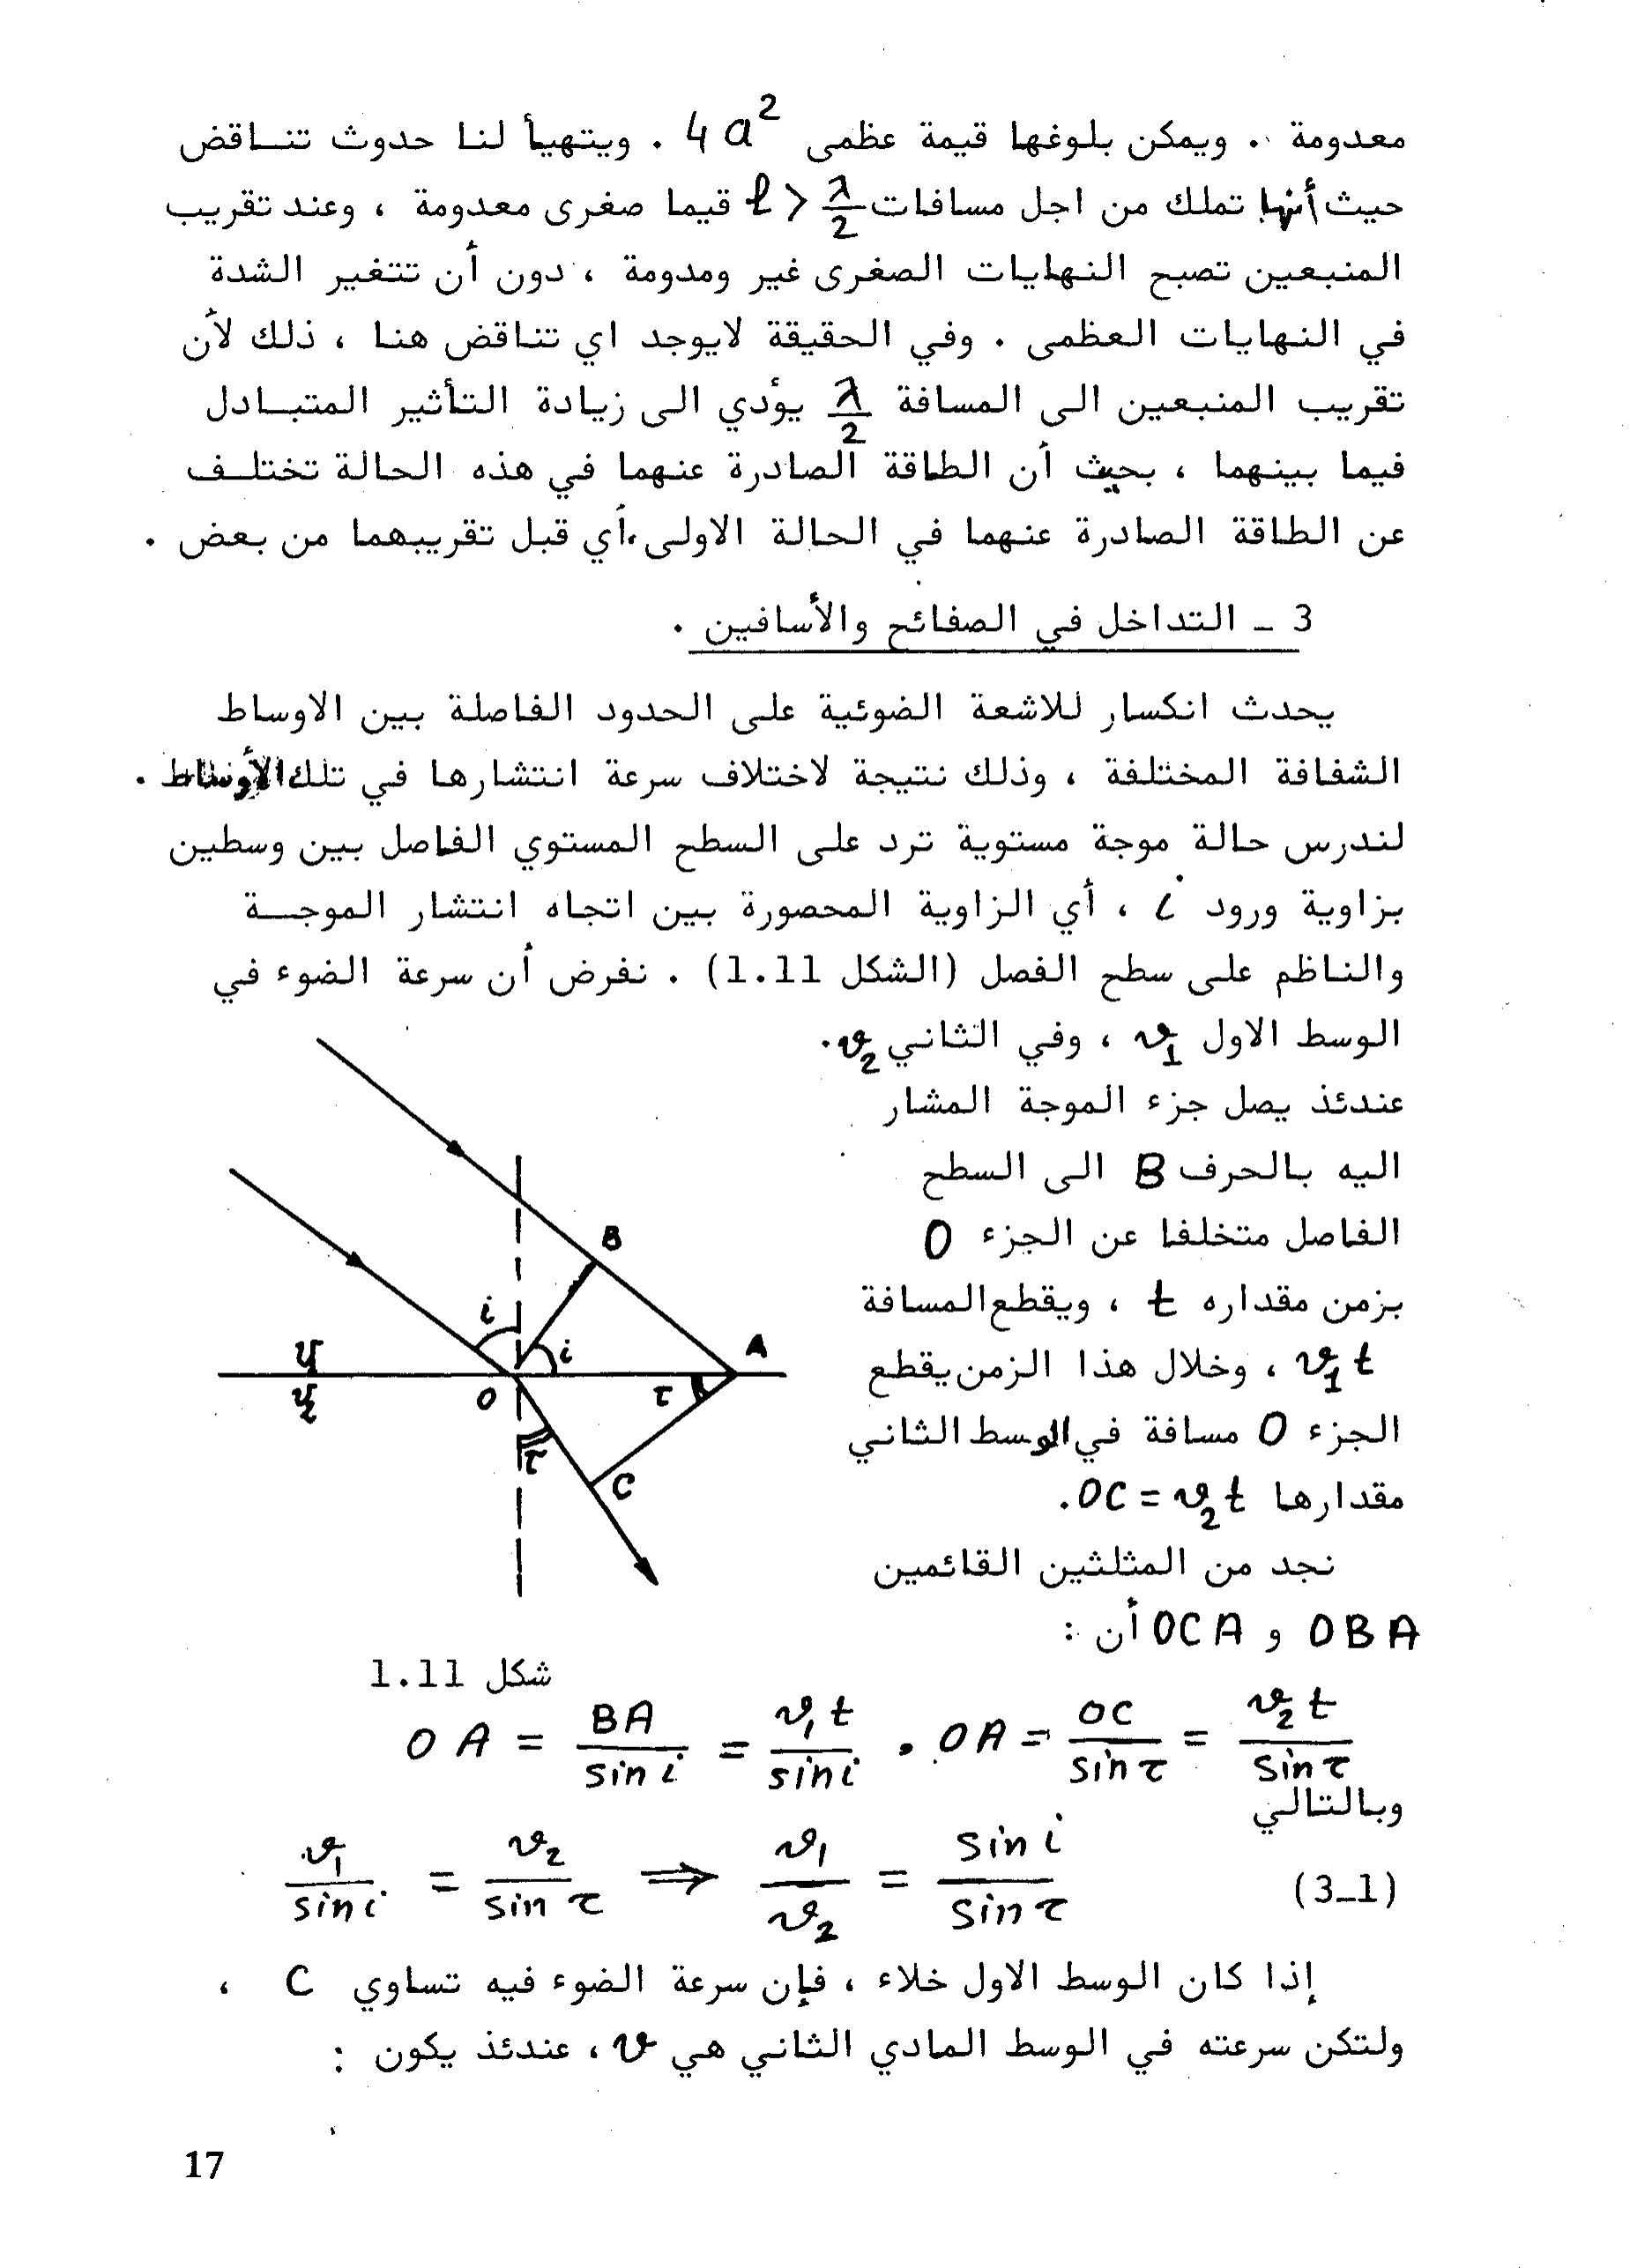 معدومة . ويمكن بلوغها قيمة عظمى 4a² . ويتهيأ لنا حدوث تنـاقض
حيث أنها تملك من اجل مسافات ℓ > λ/2 قيما صغرى معدومة ، وعند تقريب
المنبعين تصبح النهايات الصغرى غير ومدومة ، دون أن تتغير الشدة
في النهايات العظمى . وفي الحقيقة لايوجد اي تناقض هنا ، ذلك لأن
تقريب المنبعين الى المسافة λ/2 يؤدي الى زيادة التأثير المتبـادل
فيما بينهما ، بحيث أن الطاقة الصادرة عنهما في هذه الحالة تختلـف
عن الطاقة الصادرة عنهما في الحالة الاولى،أي قبل تقريبهما من بعض .
3 ـ التداخل في الصفائح والأسافين .
يحدث انكسار للاشعة الضوئية على الحدود الفاصلة بين الاوساط
الشفافة المختلفة ، وذلك نتيجة لاختلاف سرعة انتشارها في تلك الأوساط .
لندرس حالة موجة مستوية ترد على السطح المستوي الفاصل بين وسطين
بزاوية ورود i ، أي الزاوية المحصورة بين اتجاه انتشار الموجـة
والناظم على سطح الفصل (الشكل 1.11) . نفرض أن سرعة الضوء في
الوسط الاول v₁ ، وفي الثاني v₂.
عندئذ يصل جزء الموجة المشار
اليه بالحرف B الى السطح
الفاصل متخلفا عن الجزء O
بزمن مقداره t ، ويقطع المسافة
v₁t ، وخلال هذا الزمن يقطع
الجزء O مسافة في الوسط الثاني
مقدارها OC = v₂t.
نجد من المثلثين القائمين
OBA و OCA أن :
B
i
i
A
v₁
O
τ
v₂
τ
C
شكل 1.11
OA = BA/sin i = v₁t/sin i . OA = OC/sin τ = v₂t/sin τ
وبالتالي
v₁/sin i = v₂/sin τ ⇒ v₁/v₂ = sin i/sin τ (3-1)
إذا كان الوسط الاول خلاء ، فإن سرعة الضوء فيه تساوي C ،
ولتكن سرعته في الوسط المادي الثاني هي v ، عندئذ يكون :
17